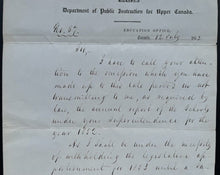 Department of Public Instruction for Upper Canada.
EDUCATION OFFICE,
Sir,
I have to call your atten-
tion to the omission which you have
made up to this late period in not
transmitting to me, as required by
law, the annual report of the Schools
under your Superintendence for the
year 1862.
As I shall be under the necessity
of withholding the legislative ap-
portionment for 1863 until a